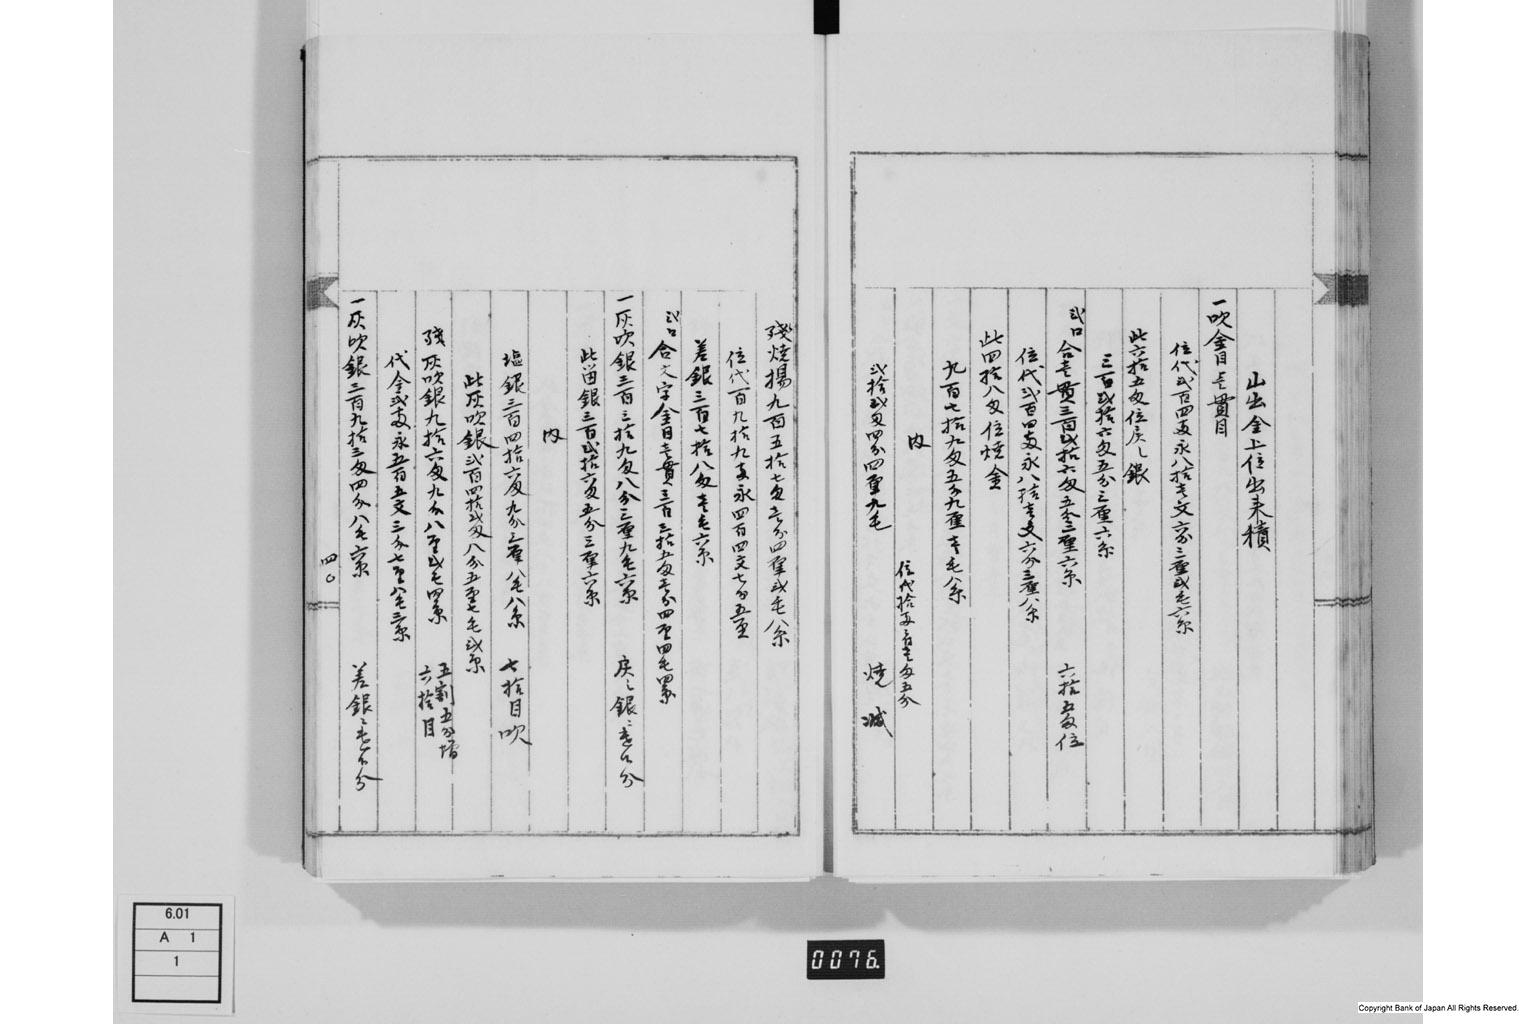 山出金上位出来積
一吹金目壱貫目
位代弐百四両永八拾壱文六分三厘弐毛六糸
此六拾五匁位戻し銀
三百弐拾六匁五分三厘六糸
弐口合壱貫三百弐拾六匁五分三厘六糸　六拾五匁位
位代弐百四両永八拾壱文六分三厘八糸
此四拾八匁位焼金
九百七拾九匁五分九厘壱毛八糸
内　位代拾両壱匁五分
弐拾弐匁四分四厘九毛　焼減
残焼揚九百五拾七匁壱分四厘弐毛八糸
位代百九拾九両永四百四文七分五厘
差銀三百七拾八匁壱毛六糸
弐口合文字金目壱貫三百三拾五匁壱分四厘四毛四糸
一灰吹銀三百三拾九匁八分三厘九毛六糸　戻し銀ニ
此留銀三百弐拾六匁五分三厘六糸
内
塩銀三百四拾六匁九分三厘八毛八糸　七拾目吹
此灰吹銀弐百四拾弐匁八分五厘七毛弐糸
残灰吹銀九拾六匁九分八厘弐毛四糸　五割五分増　六拾目
代金弐両永五百五文三分七厘八毛三糸
一灰吹銀三百九拾三匁四分八毛六糸　差銀ニ
四〇
6.01
A 1
1
0076.
Copyright Bank of Japan All Rights Reserved.